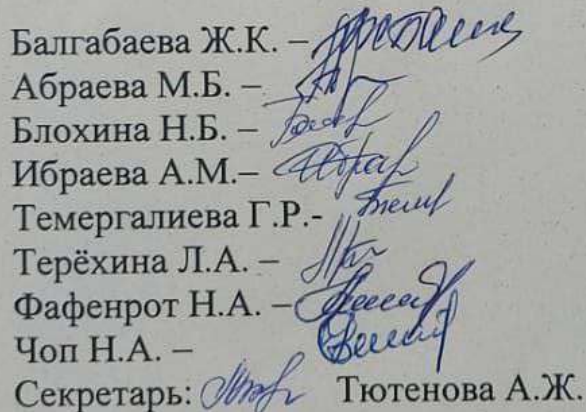 Балгабаева Ж.К. –
Абраева М.Б. –
Блохина Н.Б. –
Ибраева А.М.–
Темергалиева Г.Р.-
Терёхина Л.А. –
Фафенрот Н.А. –
Чоп Н.А. –
Секретарь: Тютенова А.Ж.